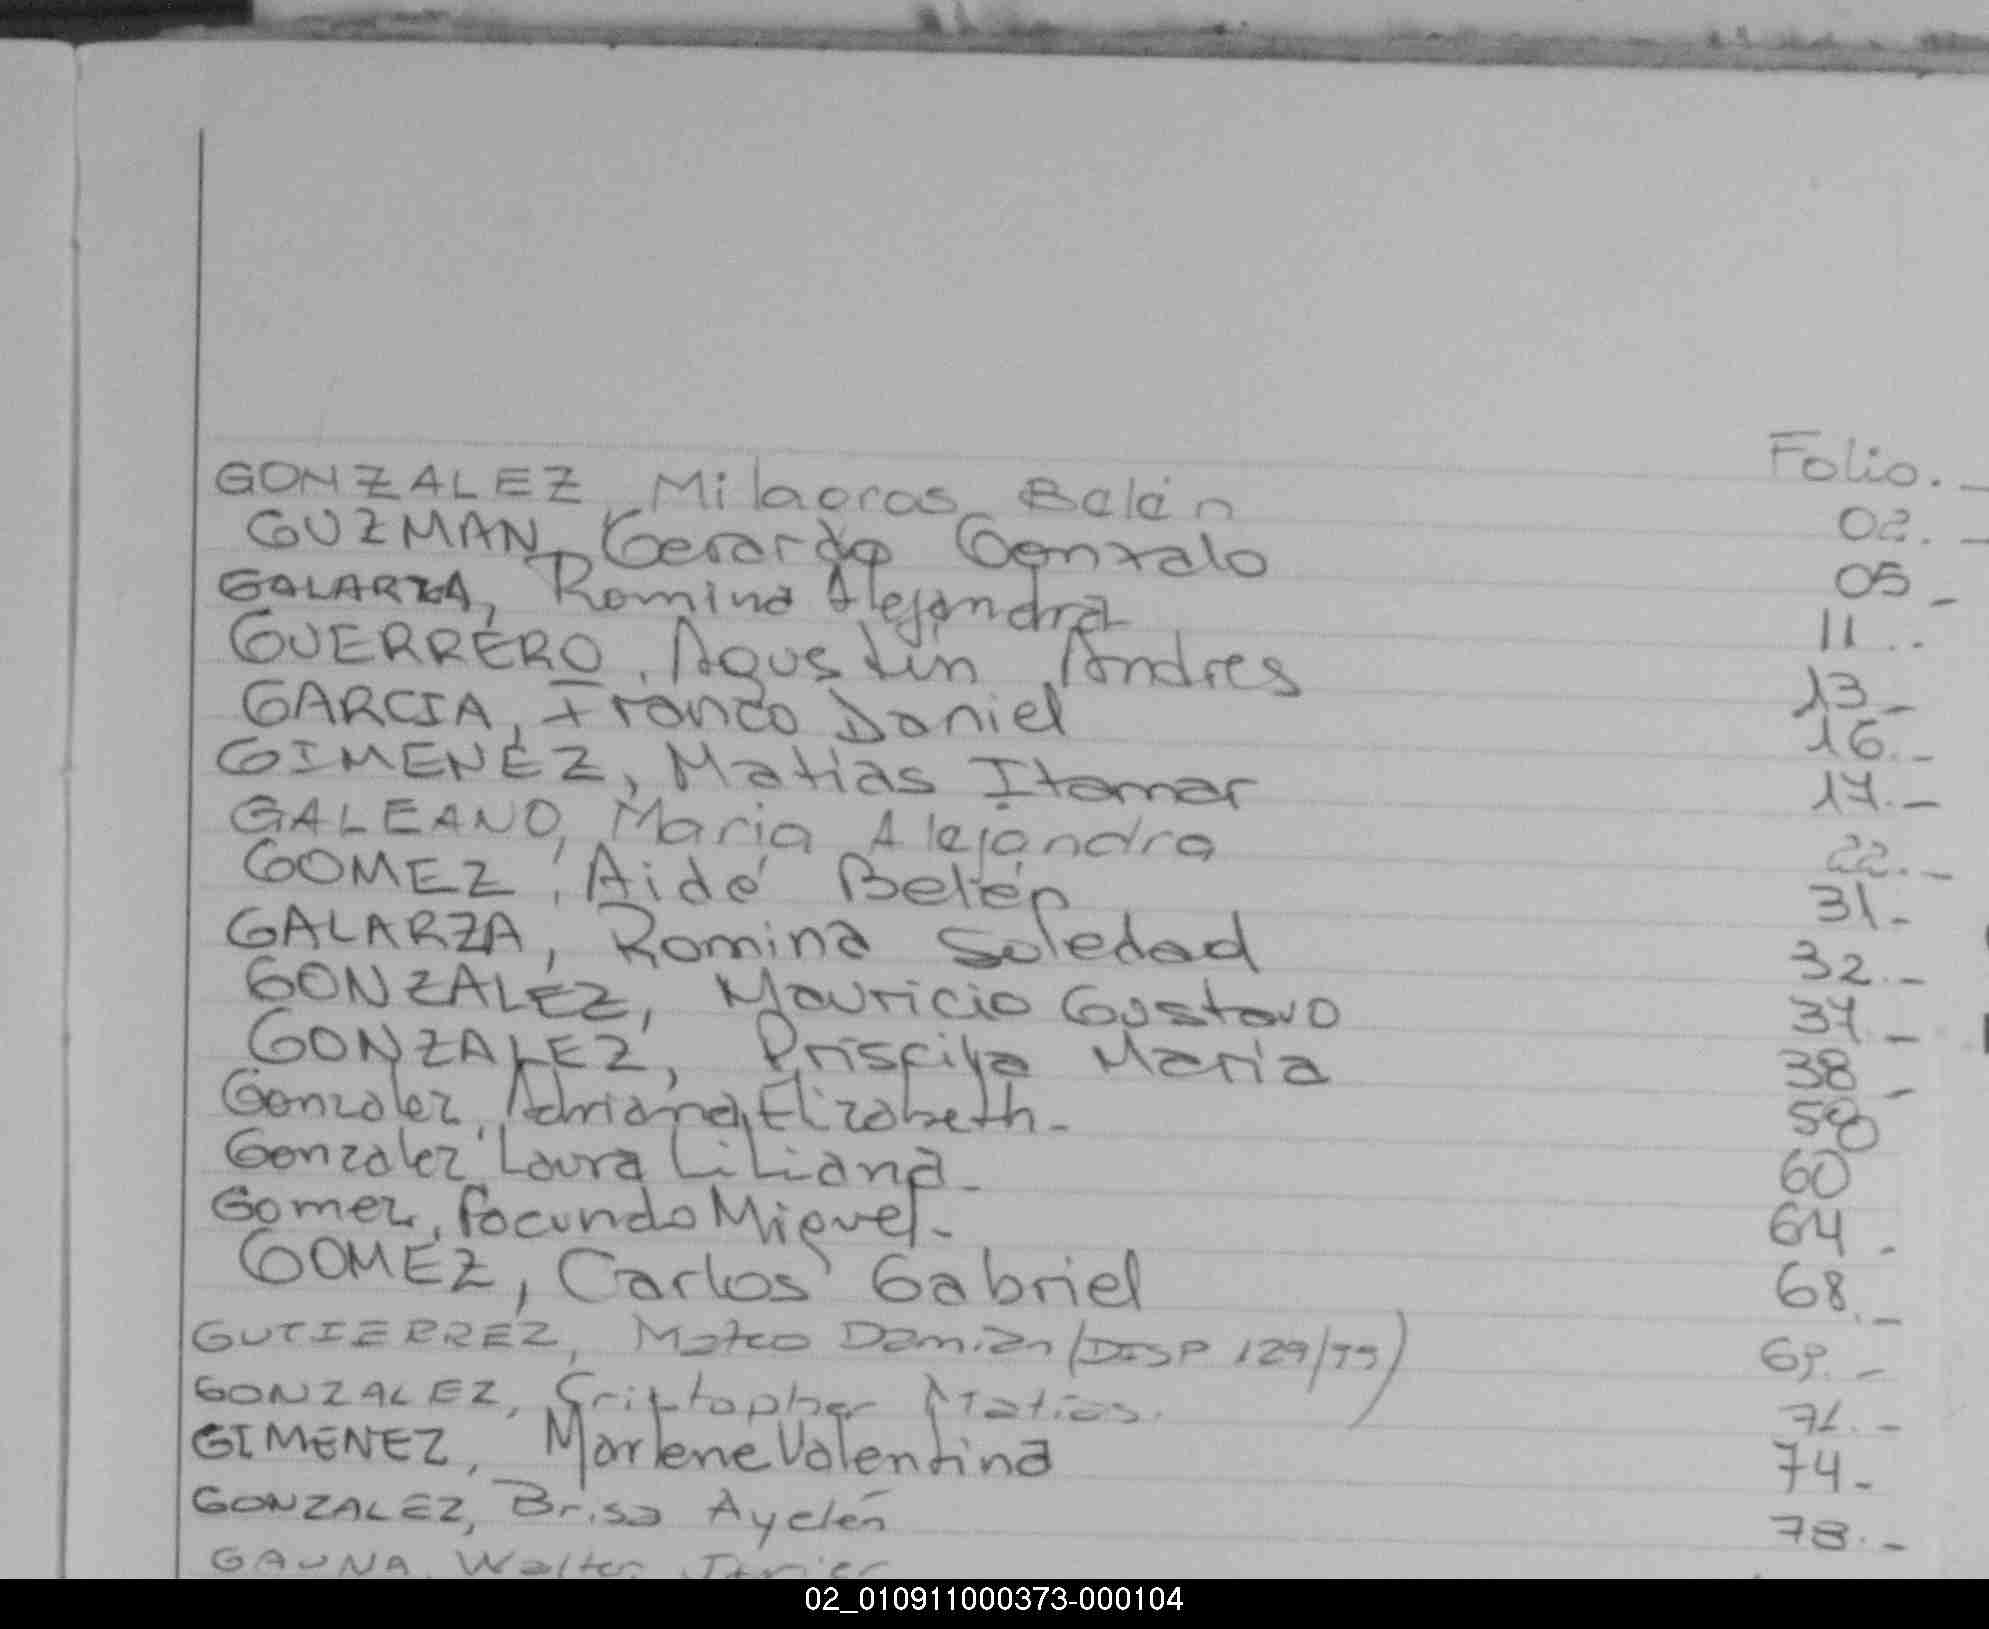 Folio.
GONZALEZ, Milagros Belén 02.
GUZMAN, Gerardo Gonzalo 05
GALARZA, Romina Alejandra 11..
GUERRERO, Agustin Andres 13_
GARCIA, Franco Daniel 16._
GIMENEZ, Matias Itamar 17._
GALEANO, Maria Alejandra 22._
GOMEZ, Aidé Belén 31.-
GALARZA, Romina Soledad 32._
GONZALEZ, Mauricio Gustavo 37._
GONZALEZ, Priscila Maria 38_
Gonzalez, Adriana Elizabeth-
Gonzalez, Laura Liliana_ 60
Gomez, Facundo Miguel- 64.
GOMEZ, Carlos Gabriel 68._
GUTIERREZ, Mateo Damian (DISP 129/99) 69._
GONZALEZ, Cristopher Matias. 71._
GIMENEZ, Marlene Valentina 74-
GONZALEZ, Brisa Ayelén 78._
GAUNA, Walter Javier
02_010911000373-000104